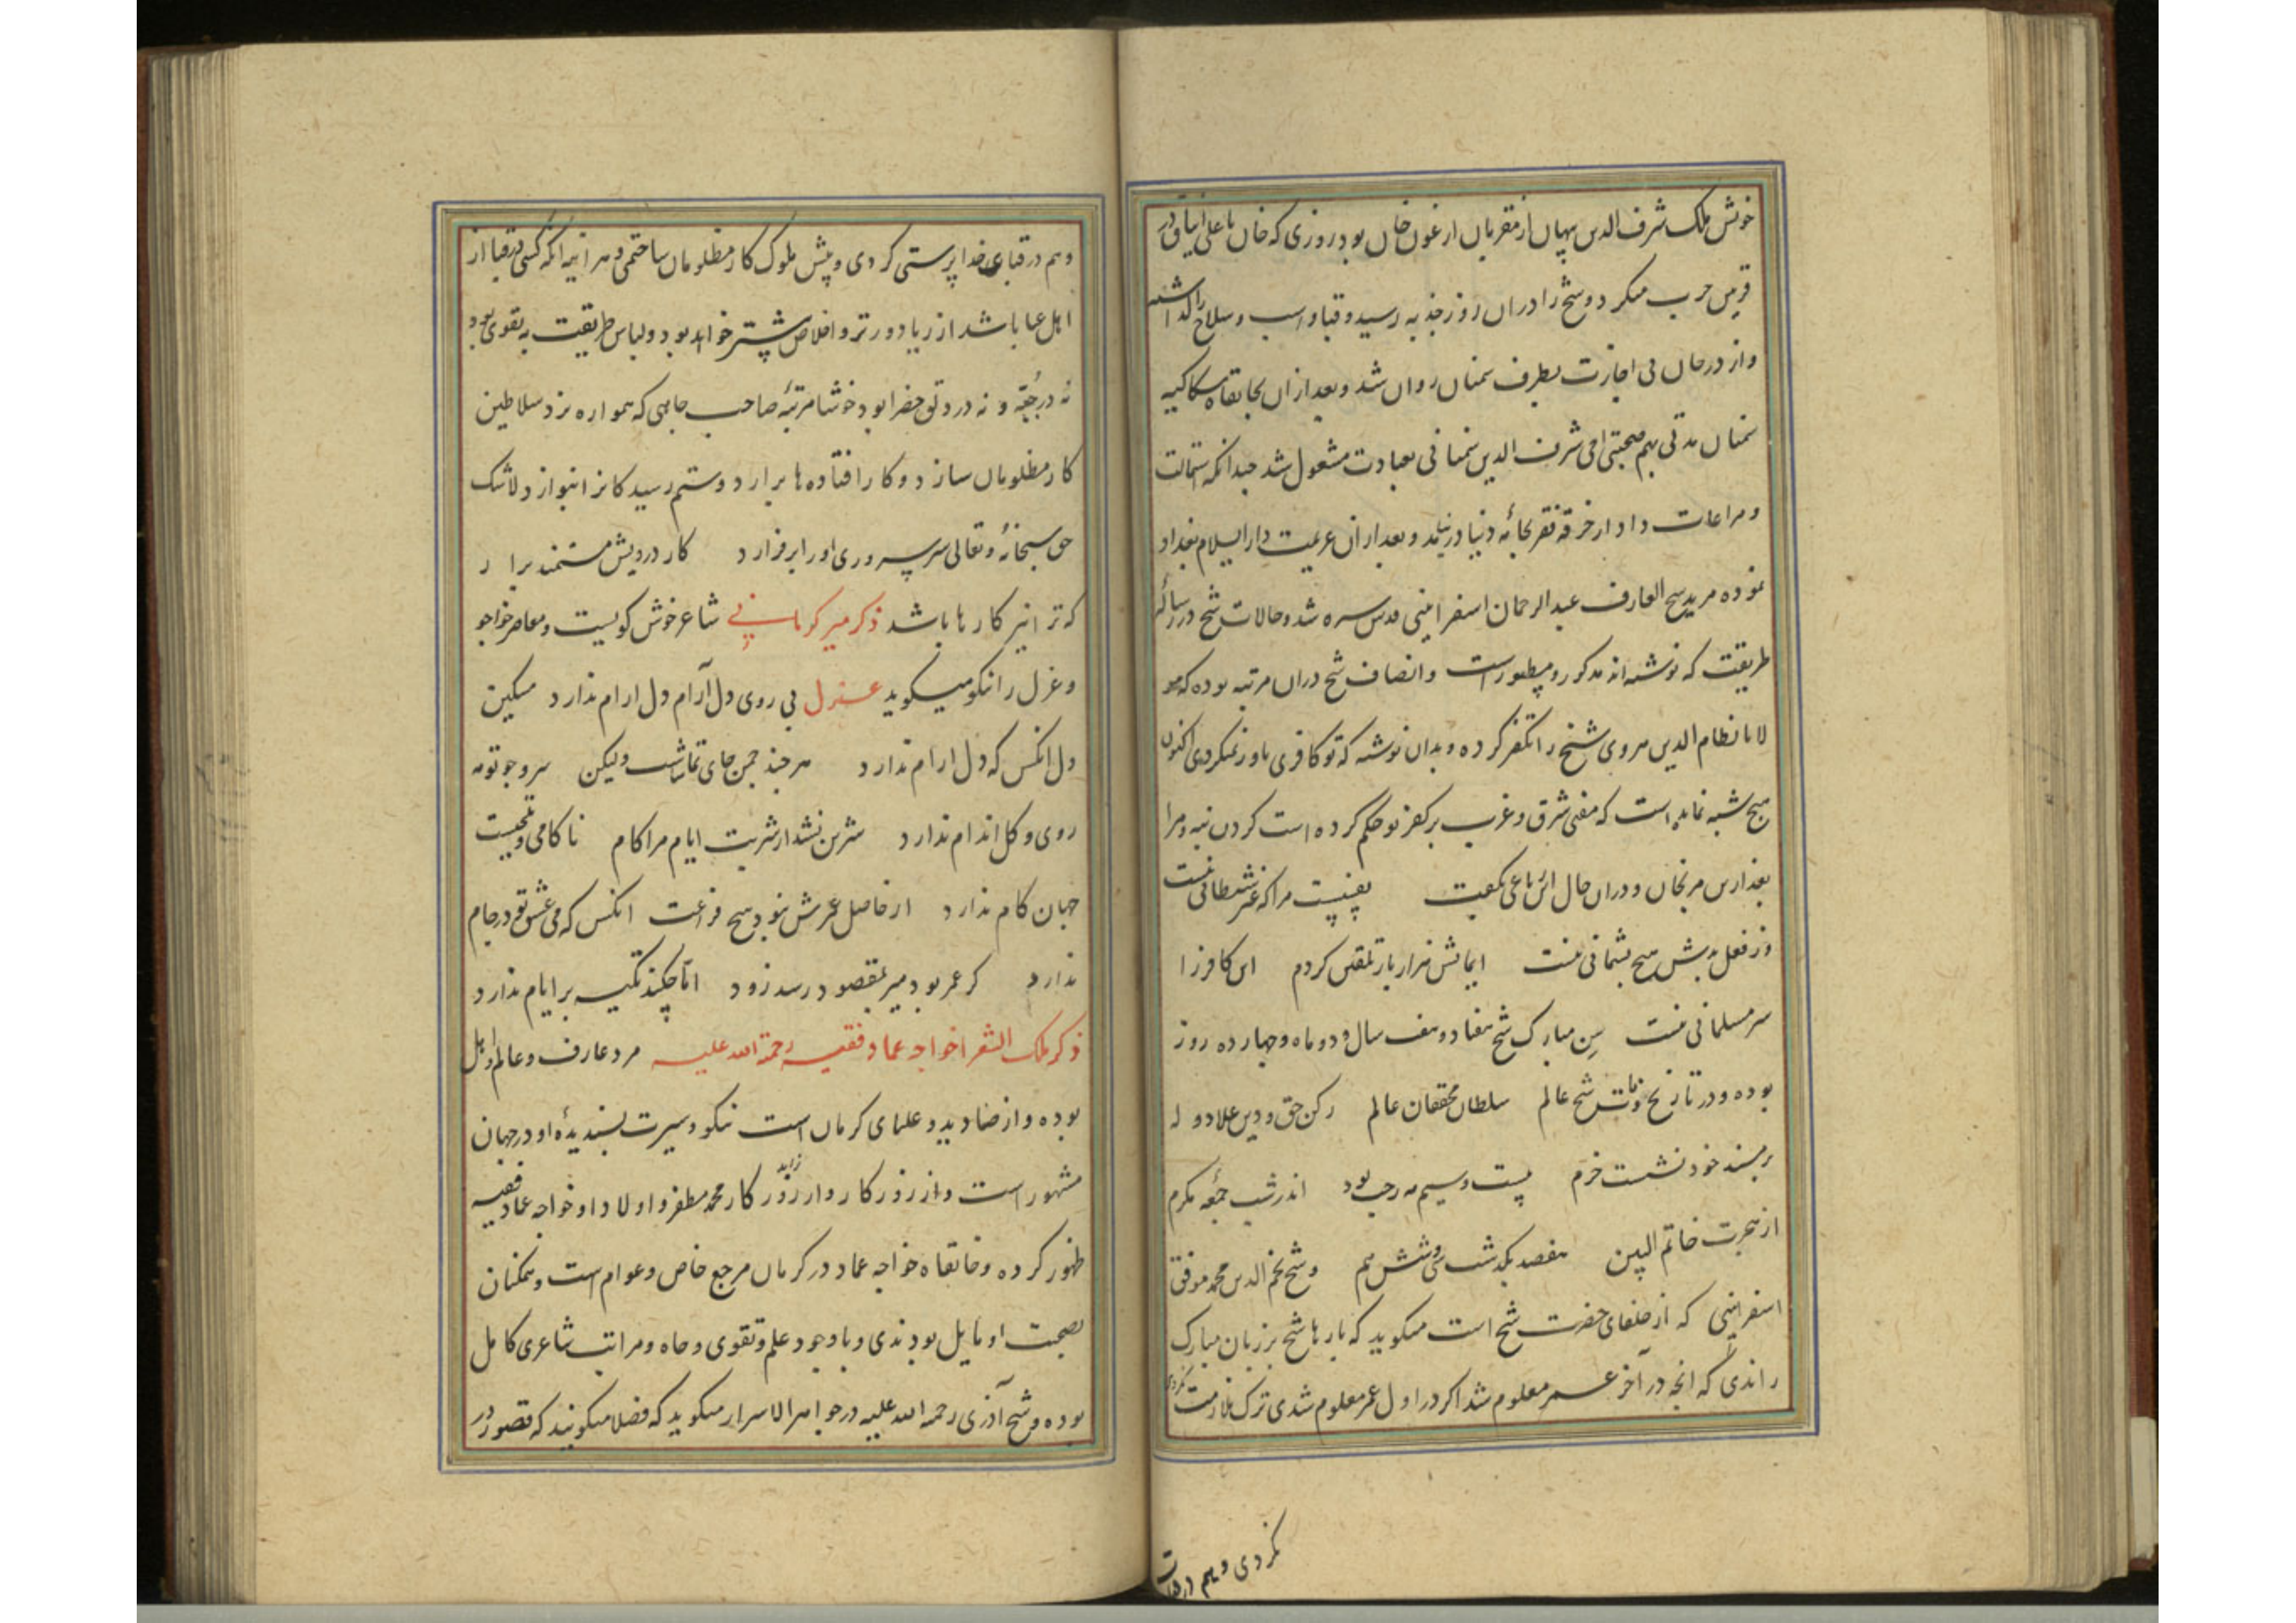 خویش ملک شرف الدین سپهان از مقربان ارغون خان بود روزی که خان با علی ایناق در
قزوین حرب میکرد و شیخ را در ان روز جذبه رسید و قبا و اسب و سلاح را گذاشته
و از در خان بی اجازت بطرف سمنان روان شد و بعد از ان بخانقاه سکاکیه
سمنان مدتی بهم صحبتی اخی شرف الدین سمنانی بعبادت مشغول شد چندانکه استمالت
و مراعات داد از خرقه فقر بجامه دنیا در نیامد و بعد از ان عزیمت دار السلام بغداد
نموده مرید شیخ العارف عبد الرحمان اسفراینی قدس سره شد و حالات شیخ در رسائل
طریقت که نوشته اند مذکور و مسطور است و انصاف شیخ در ان مرتبه بوده که مو
لانا نظام الدین هروی شیخ را تکفیر کرده و بدان نوشته که تو کافری باور نمیکردی اکنون
هیچ شبه نمانده است که مفتی شرق و غرب بر کفر تو حکم کرده است کردن نبه و مرا
بعد ازین مرنجان و دران حال این رباعی کفت نفسیست مرا که غیر شیطانی نیست
وز فعل بدش هیچ پشیمانی نیست ایمانش هزار بار تلقین کردم این کافر را
سر مسلمانی نیست سن مبارک شیخ هفتاد و هفت سال و دو ماه و چهارده روز
بوده و در تاریخ وفات شیخ عالم سلطان محققان عالم رکن حق و دین علادوله
بر مسند خود نشست خرم بیست و سیم مه رجب بود اندر شب جمعه مکرم
از هجرت خاتم النبین هفصد بکذشت و سی و شش هم و شیخ نجم الدین محمد موفق
اسفراینی که از خلفای حضرت شیخ است میکوید که بارها شیخ بر زبان مبارک
راندی که انچه در آخر عمر معلوم شد اکر در اول عمر معلوم شدی ترک ملازمت نکردی
نکردی و هم در قبا
و هم در قبای خدا پرستی کردی و پیش ملوک کار مظلومان ساختمی و هر اینه انکه کسی در قبا از
اهل عبا باشد از ریا دورتر و اخلاص بیشتر خواهد بود و لباس طریقت به تقوی بود
نه در جبه و نه در دلق خضرا بود خوشا مرتبه صاحب جاهی که همواره نزد سلاطین
کار مظلومان سازد و کار افتاده ها برارد و ستم رسیدکانرا بنوازد لاشک
حق سبحانه و تعالی سر سروری اورا برفرازد کار درویش مستمند برار
که ترا نیز کارها باشد ذکر میر کرمانی شاعر خوش کویست و معاصر خواجو
و غزل را نیکو میکوید غزل بی روی دل آرام دل ارام ندارد مسکین
دل انکس که دل ارام ندارد هرچند چمن جای تماشاست ولیکن سروی چو تو مه
روی و کل اندام ندارد شیرین نشد از شربت ایام مرا کام ناکامی و نحیست
جهان کام ندارد از حاصل عمرش نبود هیچ فراغت انکس که می عشق تو در جام
ندارد کر عمر بود میر بمقصود رسد زود اما چکند تکیه بر ایام ندارد
ذکر ملک الشعرا خواجه عماد فقیه رحمة الله علیه مرد عارف و عالم و اهل
بوده و از صنادید و علمای کرمان است نیکو و سیرت پسندیده او در جهان
مشهور است و از روزکار و از روزکار محمد مظفر و اولاد او خواجه عماد فقیه
ظهور کرده و خانقاه خواجه عماد در کرمان مرجع خاص و عوام است و همکنان
بصحبت او مایل بودندی و با وجود علم و تقوی و جاه و مراتب شاعری کامل
بوده و شیخ آذری رحمه الله علیه در جواهر الاسرار میکوید که فضلا میکویند که قصور در